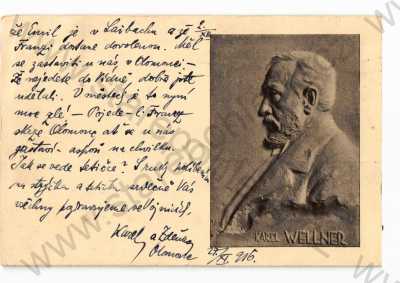 že Emil je v Laibachu a že
Franzi dostane dovolenou. Měl
se zastaviti u nás v Olomouci –
Že nejedete do Vídně, dobře jste
udělali. V městech je to nyní
moc zlé! – Pojede-li Franzi
skrze Olomouc ať se u nás
zastaví aspoň na chvilku.
Jak se vede tetičce? S rukou políbením
a tetičku srdečně Vás
všechny pozdravujeme
Karel a Zdenka
Olomouc
KAREL WELLNER
916.